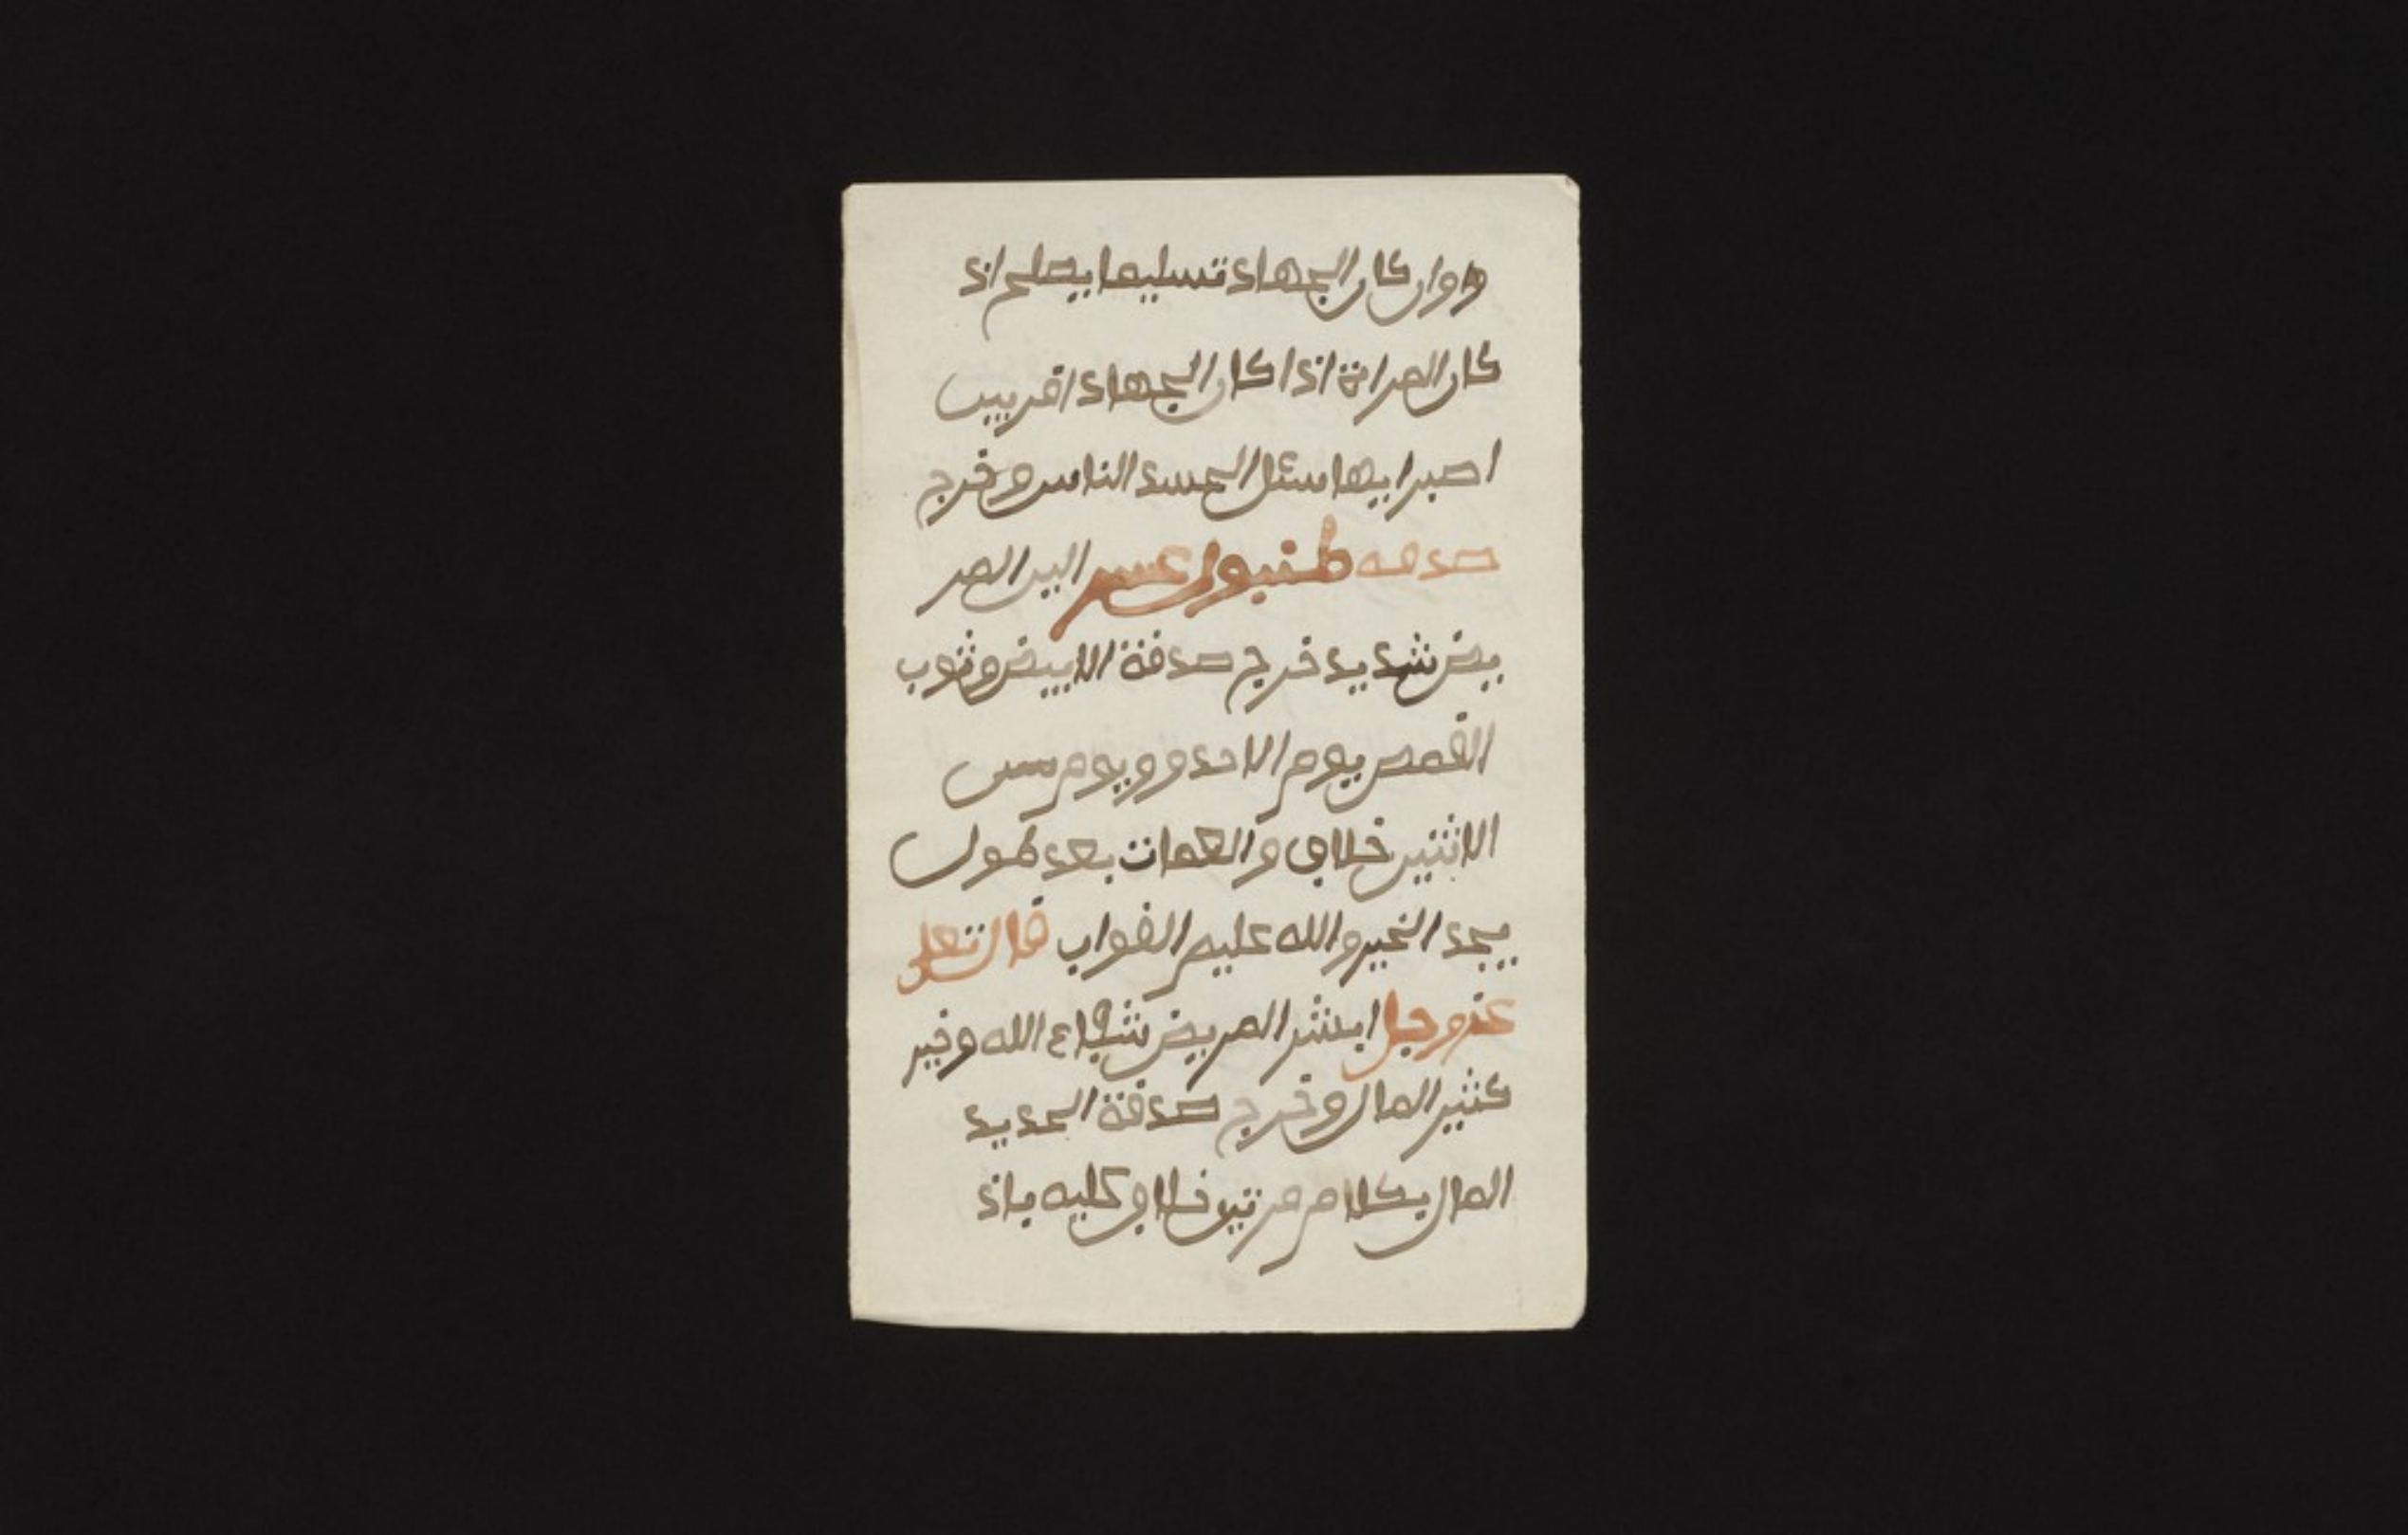 ووان كان الجهاد تسليما يصلح اذ
كان المراة اذا كان الجهاد اقريب
اصبر ايها سئل الحسد الناس وخرج
صدقه طنبول عسر اليد المر
يض شديد خرج صدقة الابيض وثوب
القمص يوم الاحد وويوم
الاثنين خلاف والعمات بعد طول
يجد الخير والله عليم الغواب قال تعلى
عز وجل ابشر المريض شفاء الله وخير
كثير المال وخرج صدقة الحديد
المال بكلام مرتين خلاف كليه باذ